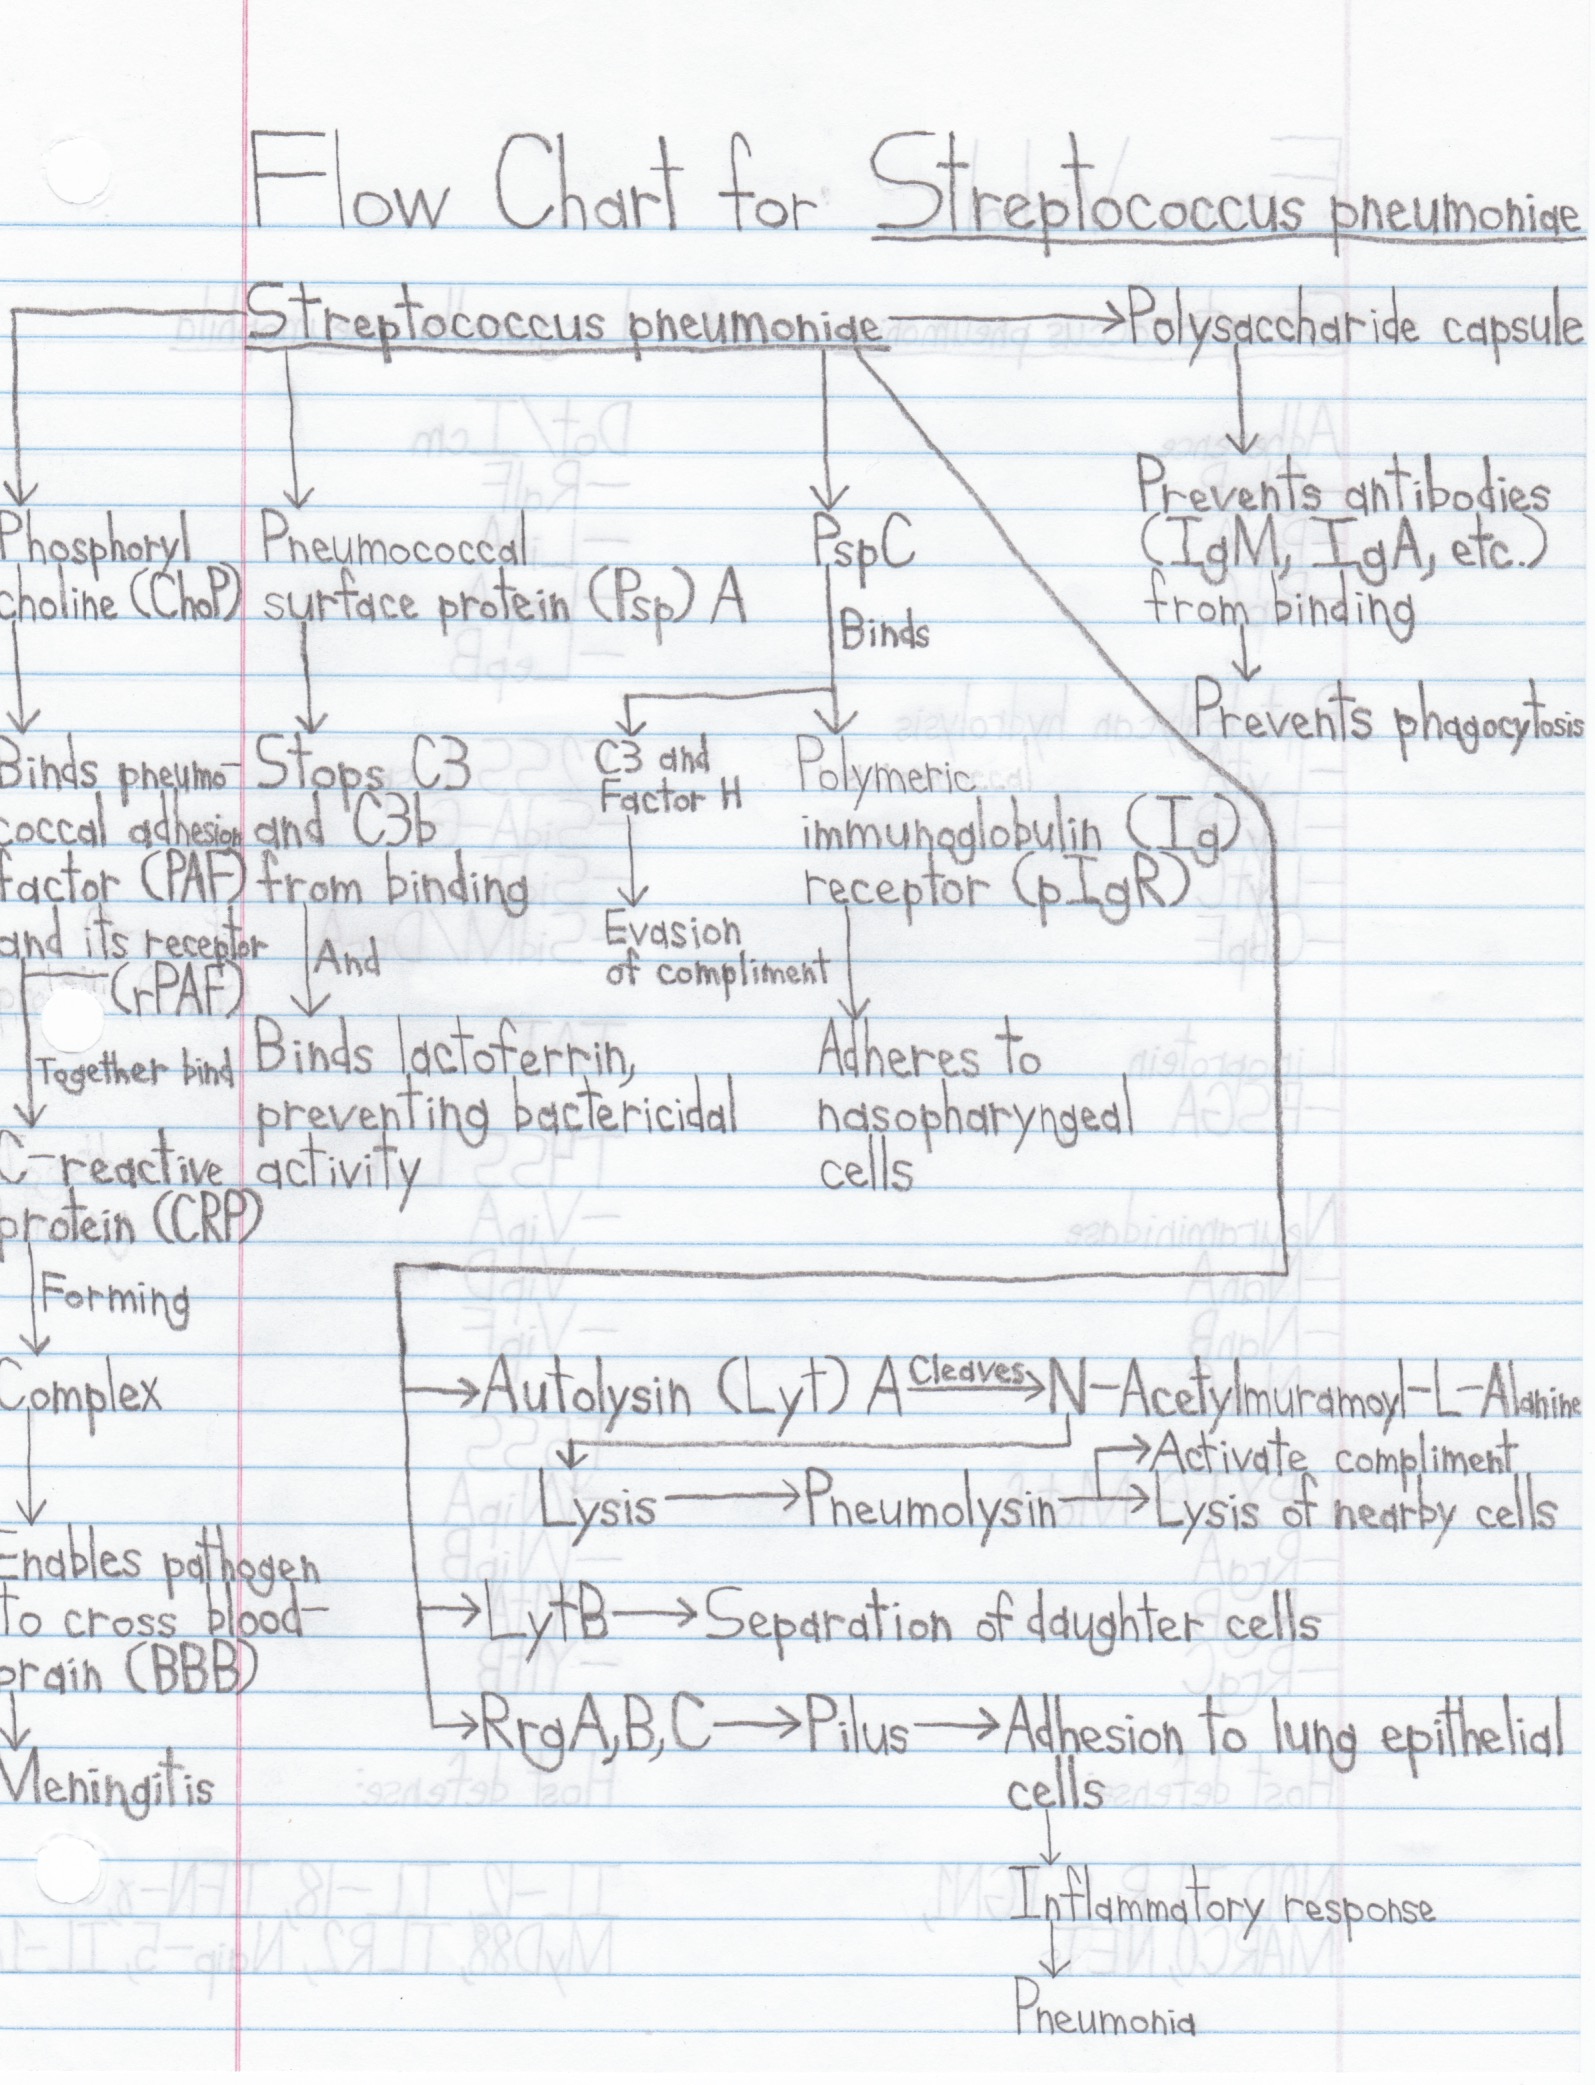 Flow Chart for Streptococcus pneumoniae
Streptococcus pneumoniae
Polysaccharide capsule
Prevents antibodies
(IgM, IgA, etc.)
from binding
Prevents phagocytosis
Phosphoryl
choline (ChoP)
Binds pneumo-
coccal adhesion
factor (PAF)
and its receptor
(rPAF)
Together bind
C-reactive
protein (CRP)
Forming
Complex
Enables pathogen
to cross blood-
brain (BBB)
Meningitis
Pneumococcal
surface protein (Psp) A
Stops C3
and C3b
from binding
And
Binds lactoferrin,
preventing bactericidal
activity
PspC
Binds
C3 and
Factor H
Evasion
of compliment
Polymeric
immunoglobulin (Ig)
receptor (pIgR)
Adheres to
nasopharyngeal
cells
Autolysin (Lyt) A Cleaves N-Acetylmuramoyl-L-Alanine
Activate compliment
Lysis Pneumolysin Lysis of nearby cells
LytB Separation of daughter cells
RrgA,B,C Pilus Adhesion to lung epithelial
cells
Inflammatory response
Pneumonia